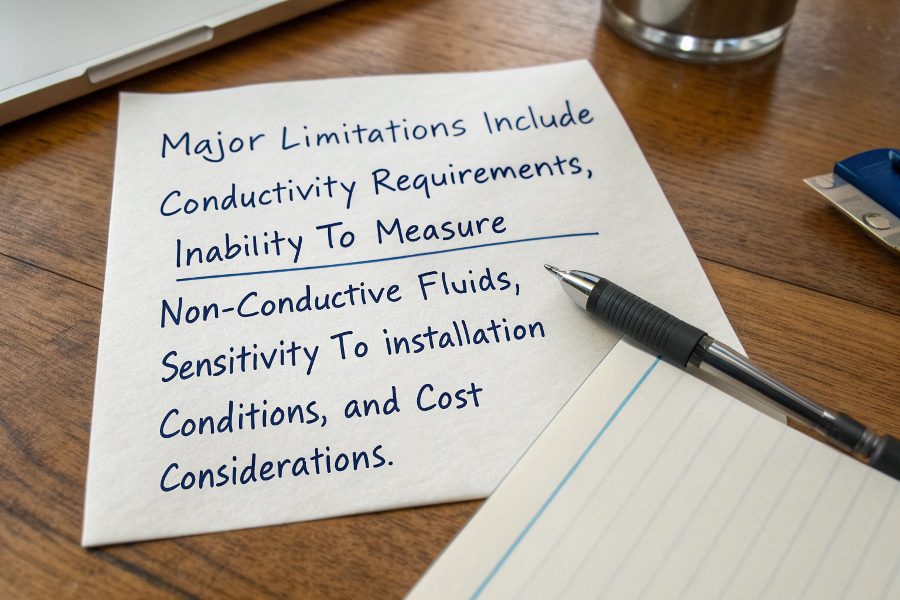 Major Limitations Include
Conductivity Requirements,
Inability To Measure
Non-Conductive Fluids,
Sensitivity To installation
Conditions, and Cost
Considerations.